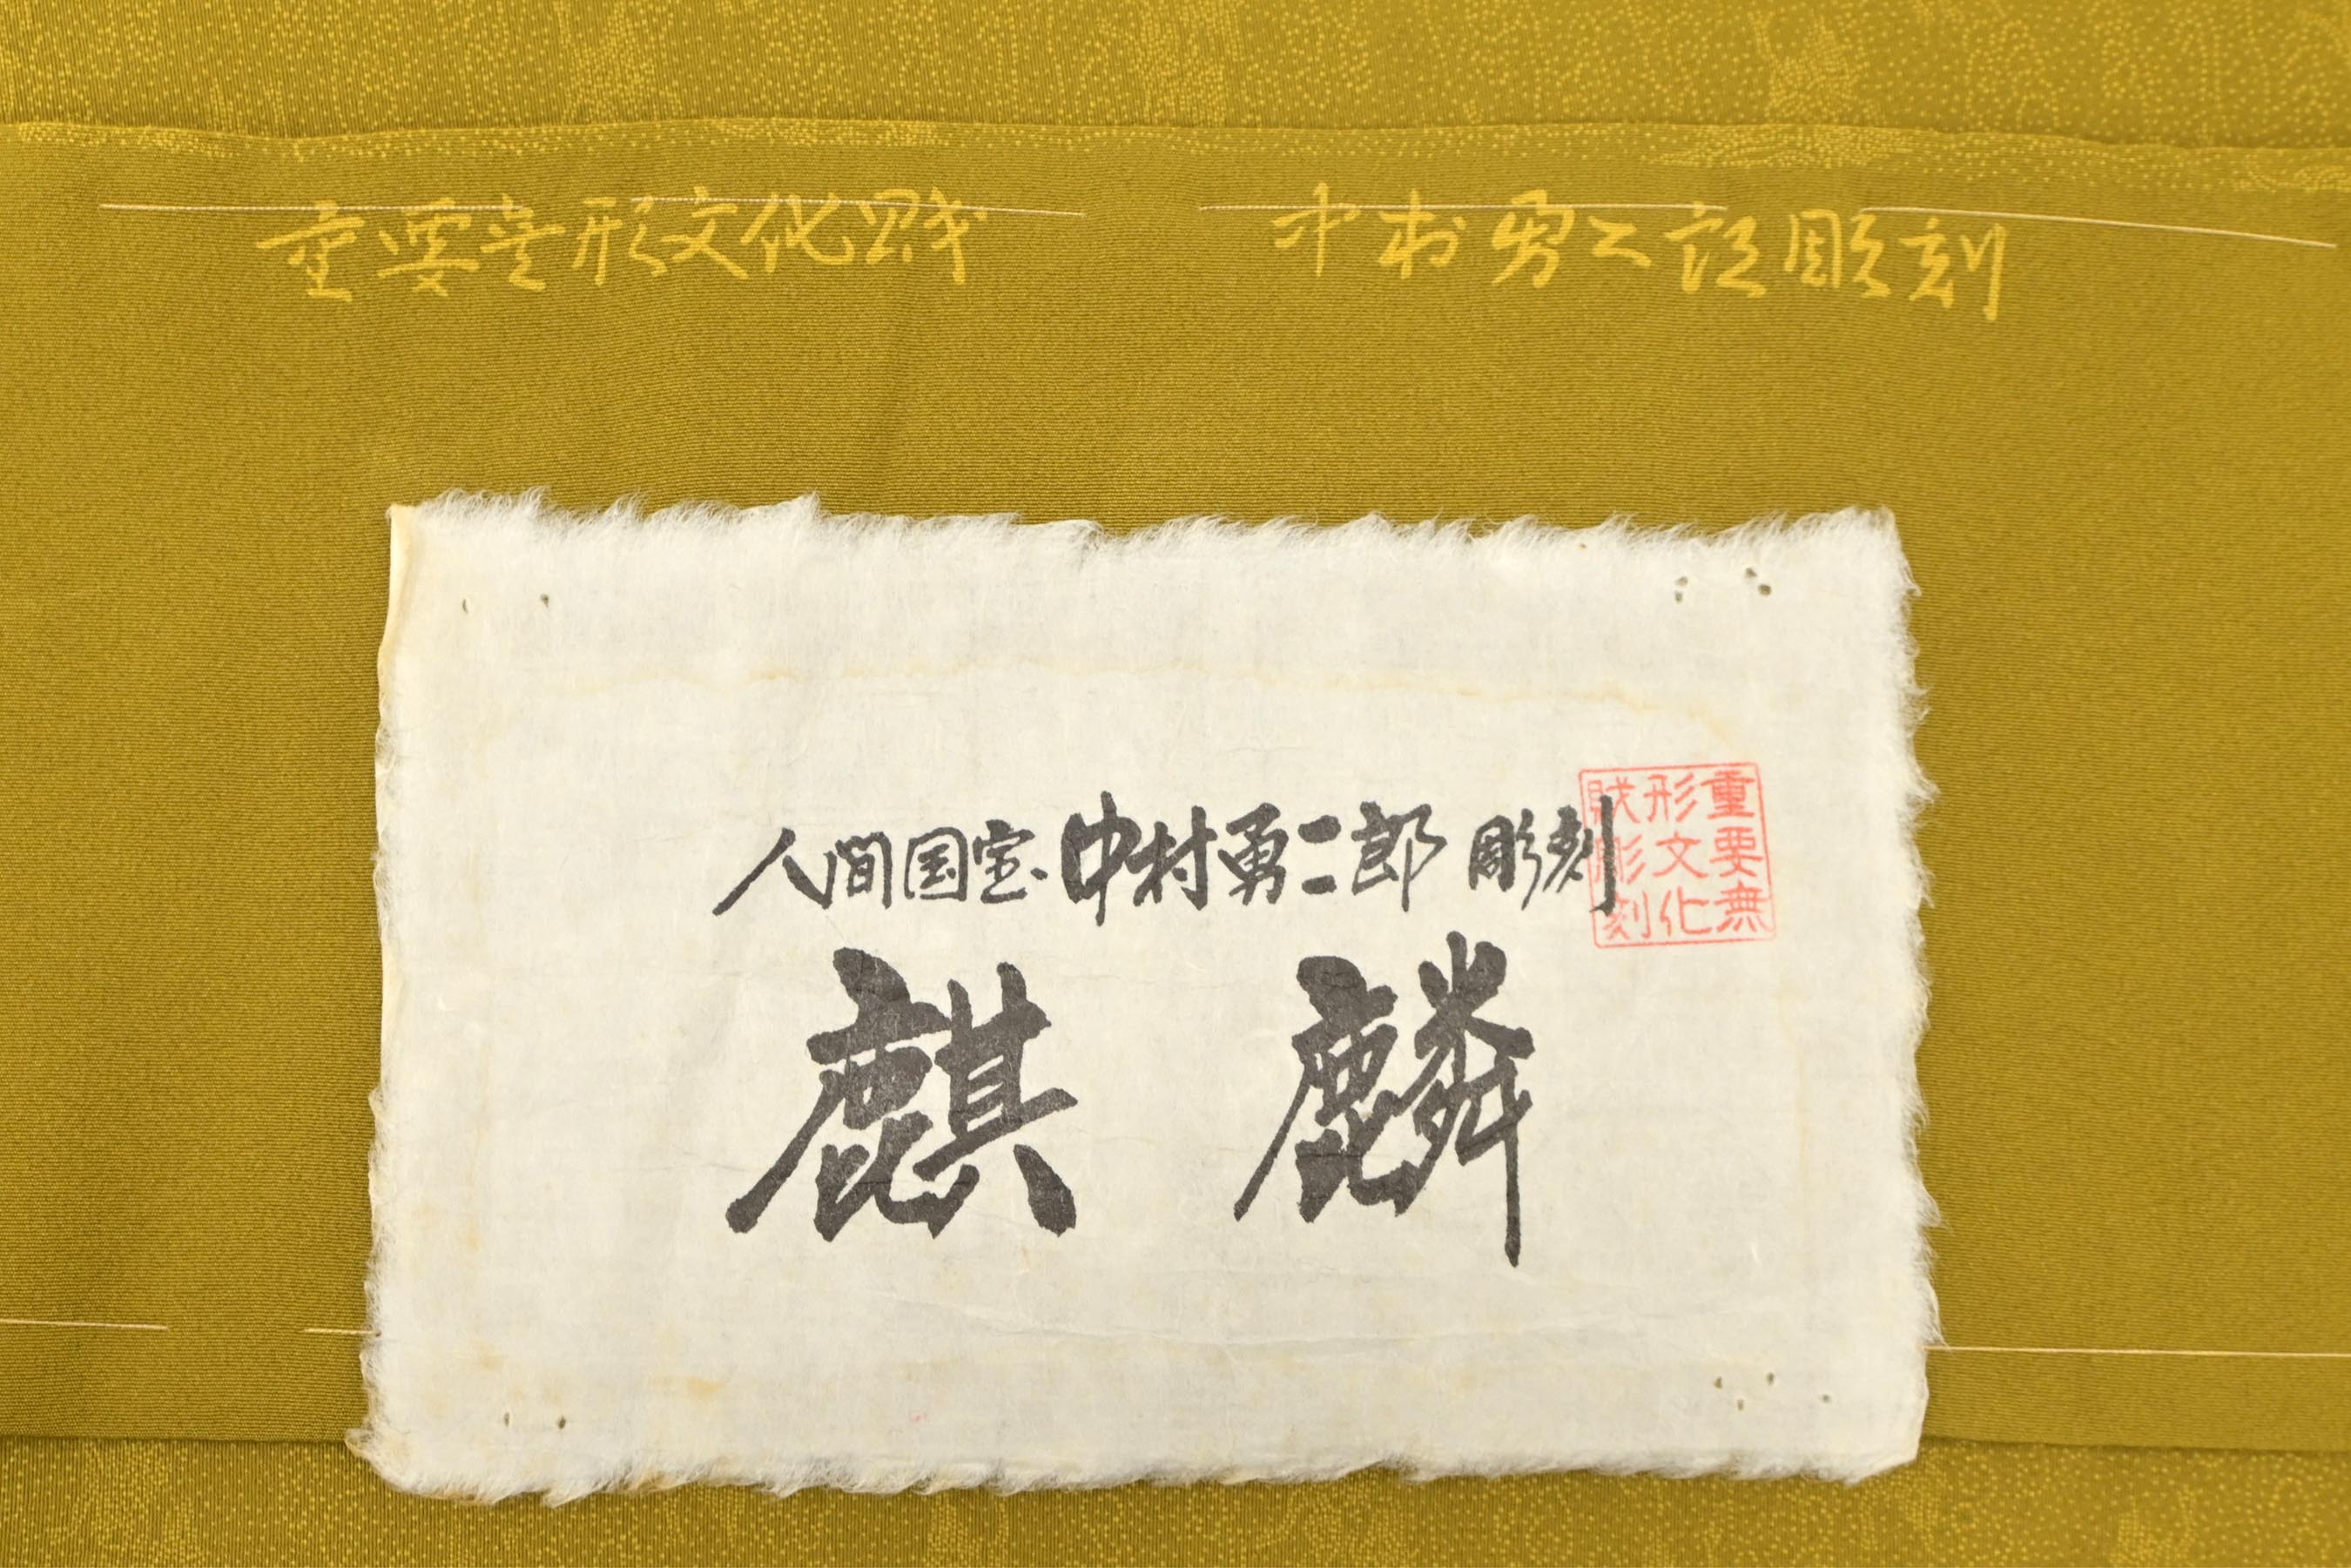 重要無形文化財 中村勇二郎彫刻
人間国宝・中村勇二郎 彫刻
麒麟
重要無
形文化
財彫刻